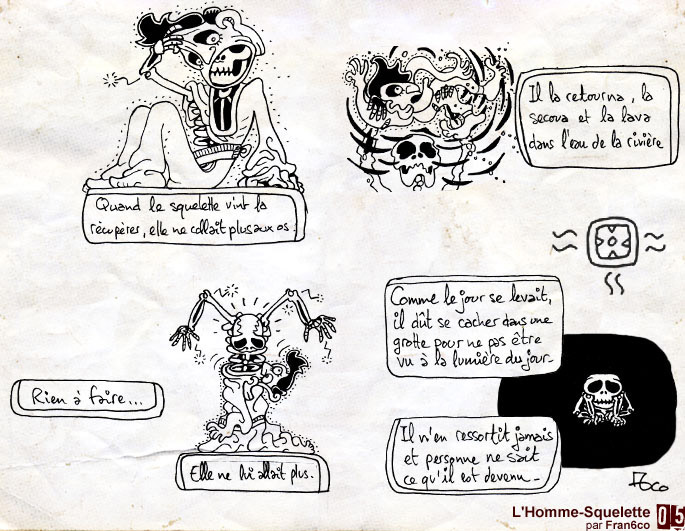 Quand le squelette vint la
récupérer, elle ne collait plus aux os.
Il la retourna, la
secoua et la lava
dans l'eau de la rivière
Rien à faire...
Elle ne lui allait plus.
Comme le jour se levait,
il dût se cacher dans une
grotte pour ne pas être
vu à la lumière du jour.
Il n'en ressortit jamais
et personne ne sait
ce qu'il est devenu.
F6co
L'Homme-Squelette 05
par Fran6co